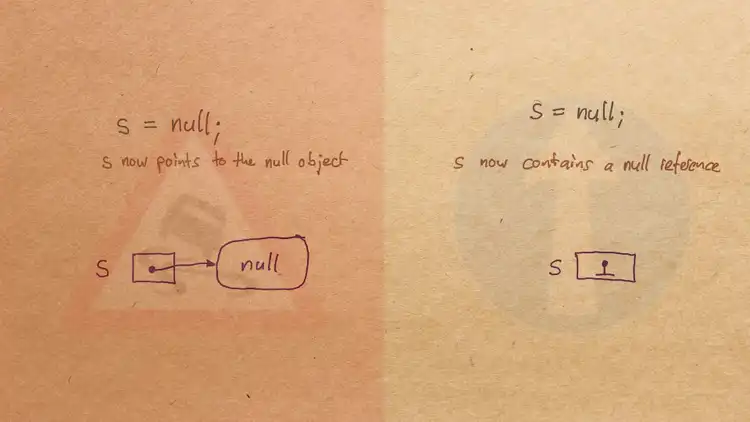 s = null;
s now points to the null object
s
null
s = null;
s now contains a null reference
s